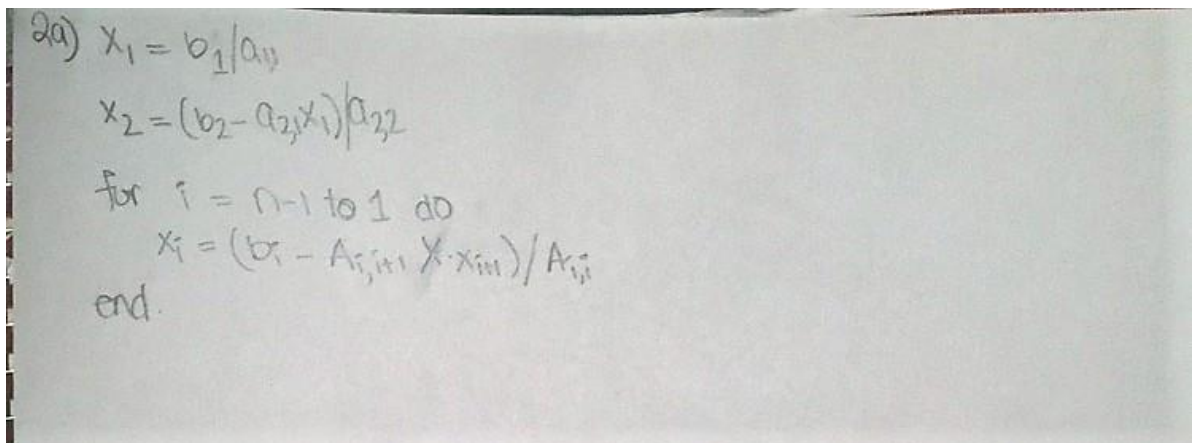 2a) x₁ = b₁/a₁,₁
x₂ = (b₂ - a₂,₁x₁)/a₂,₂
for i = n-1 to 1 do
xᵢ = (bᵢ - Aᵢ,ᵢ₊₁ · xᵢ₊₁)/Aᵢ,ᵢ
end.